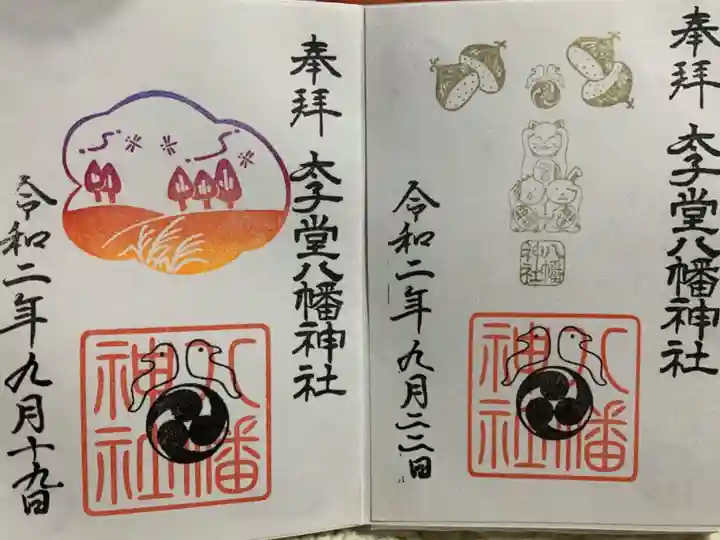 奉拝 太子堂八幡神社
八幡神社
令和二年九月二二日
八幡神社
奉拝 太子堂八幡神社
令和二年九月十九日
八幡神社